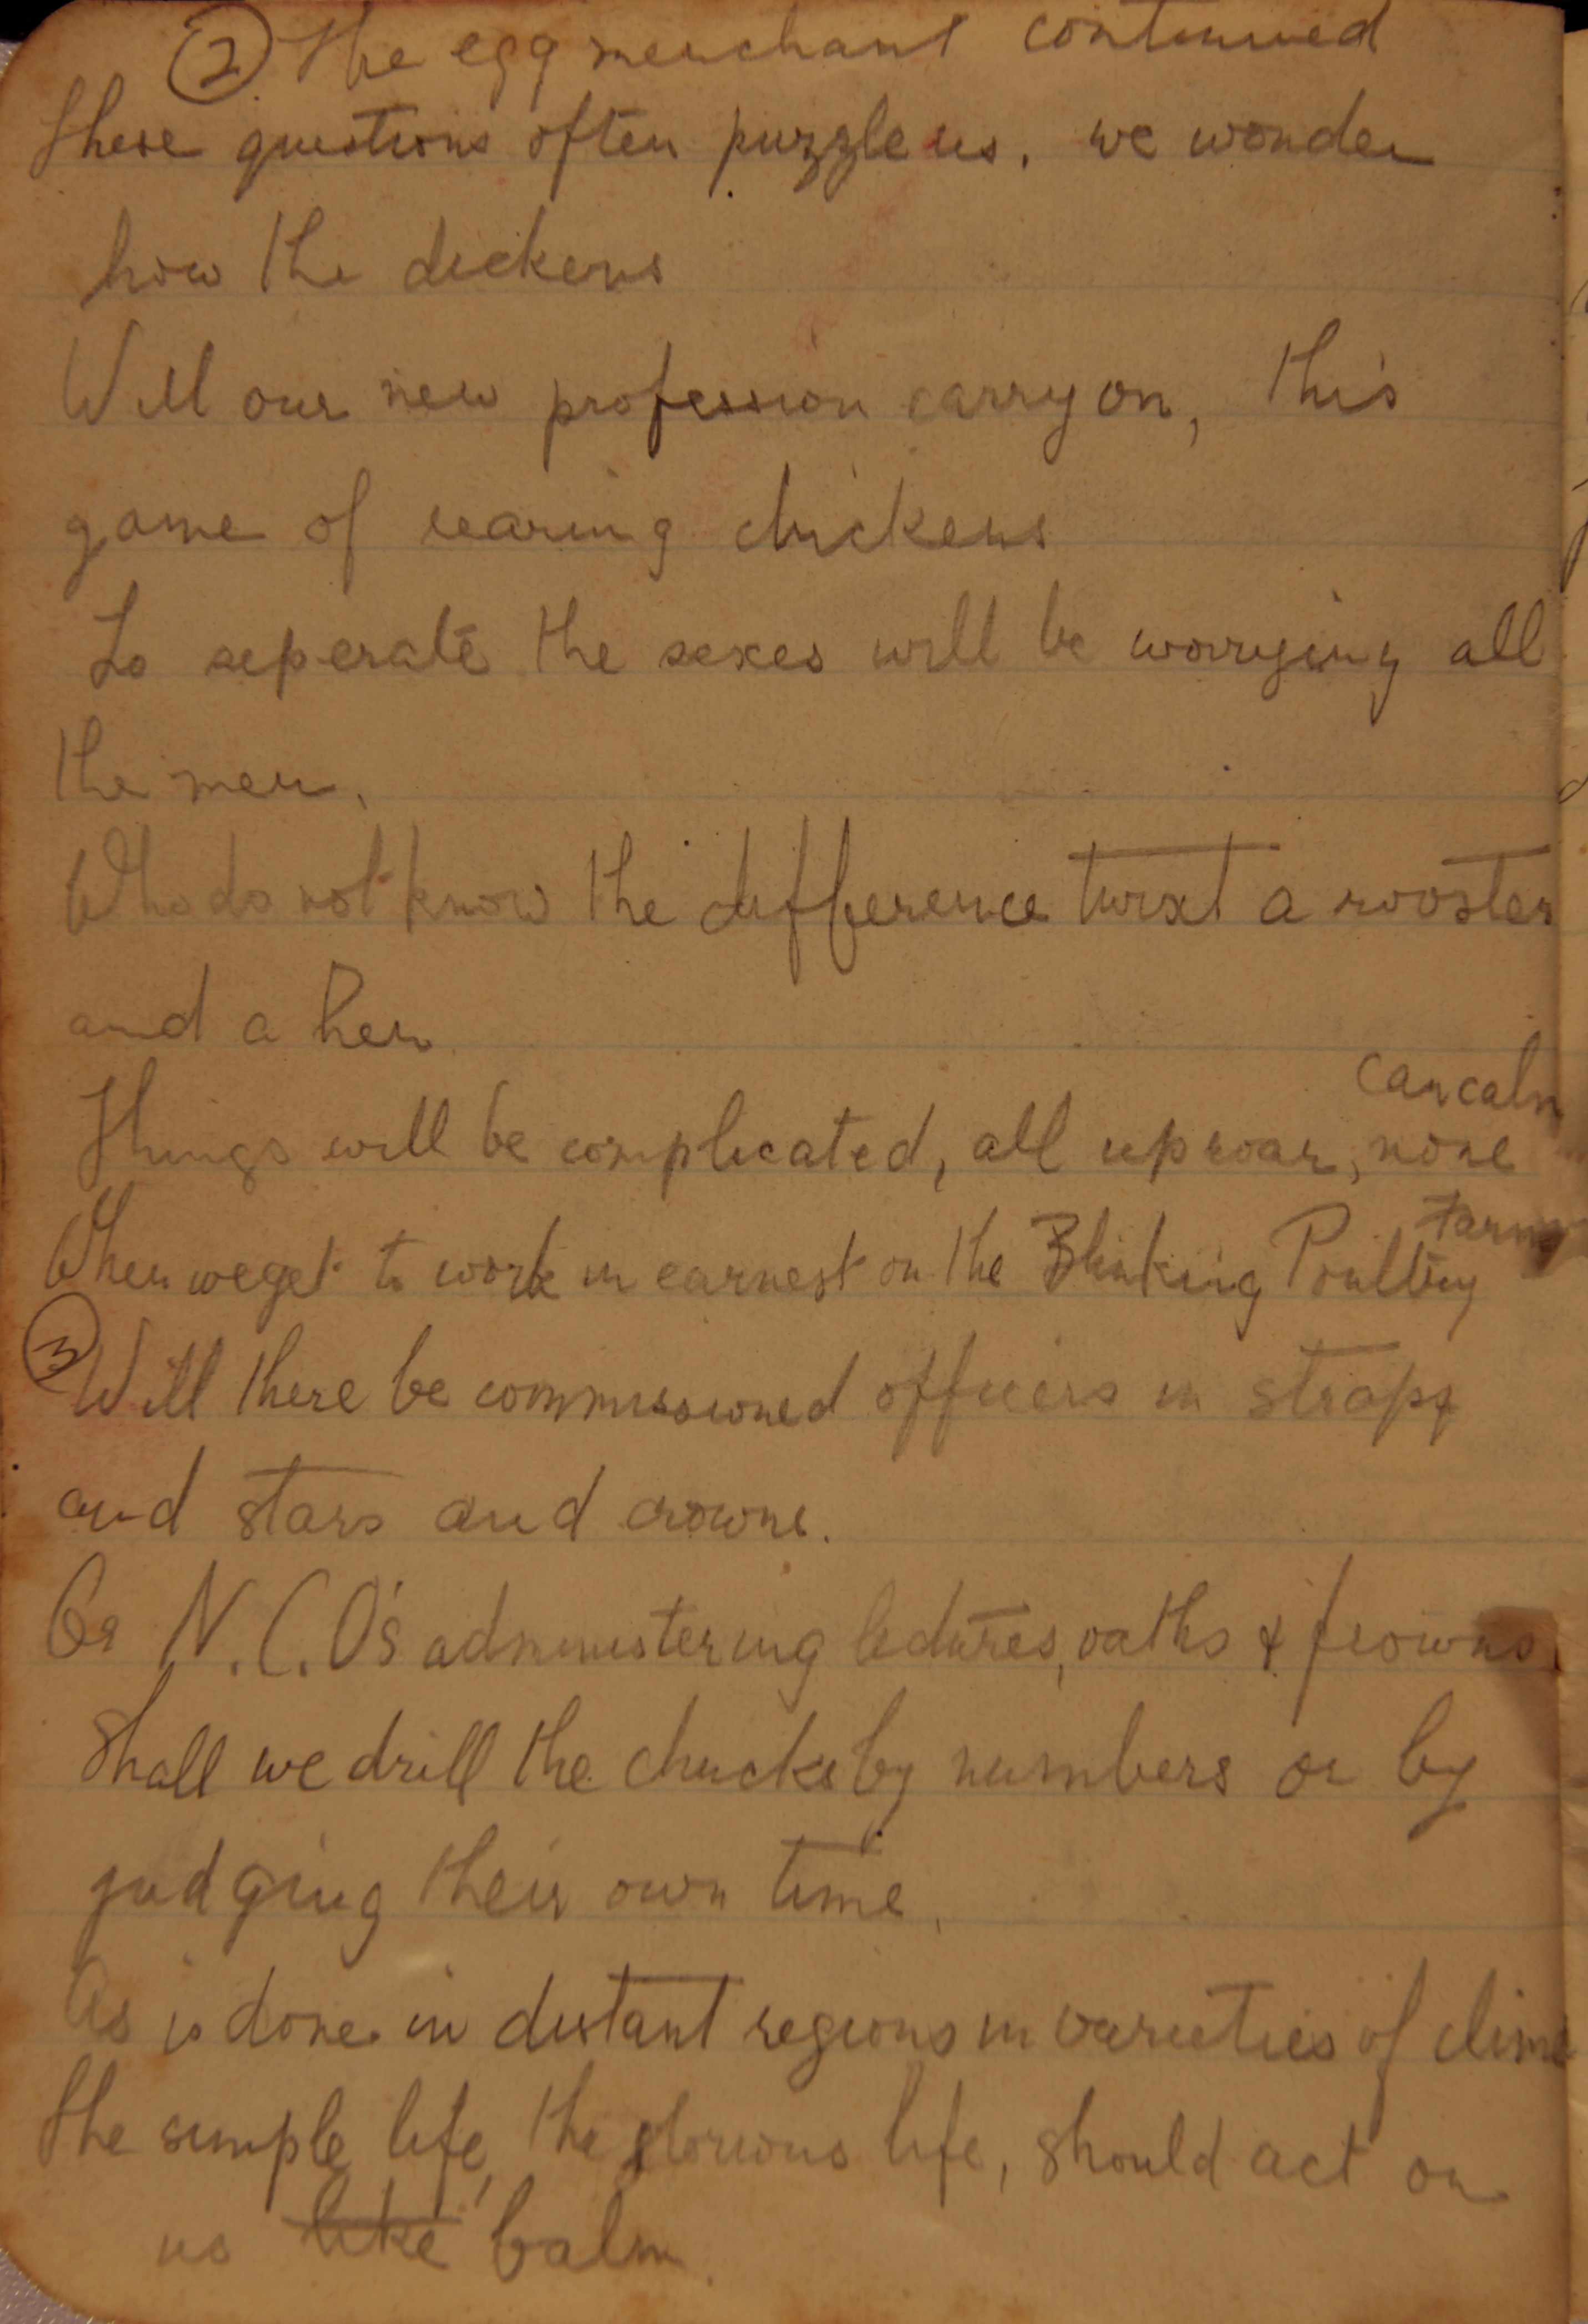 (2) The egg merchant continued
These questions often puzzle us. we wonder
how the dickens
Will our new profession carry on, this
game of rearing chickens
To seperate the sexes will be worrying all
the men.
Who do not know the difference twixt a rooster
and a hen
can calm
Things will be complicated, all uproar, none
Farm
When we get to work in earnest on the Blinking Poultry
(3) Will there be commissioned officers in straps
and stars and crowns.
Or N.C.O's administering lectures, oaths & frowns
Shall we drill the chucks by numbers or by
judging their own time.
As is done in distant regions in varieties of clime
The simple life, the glorious life, should act on
us like balm.